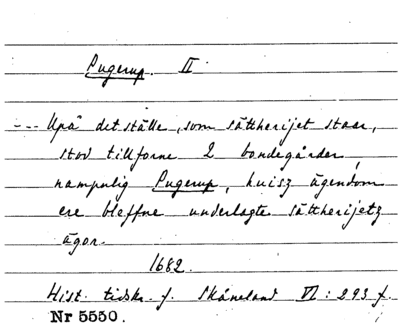 Pugerup. II.
--- Upå det ställe, som sätherijet staar,
stod tillforne 2 bondegårder,
nampnlig Pugerup, huisz ägendom
ere bleffne underlagte sätherijetz
ägor.
1682.
Hist. tidskr. f. Skåneland VI: 293 f.
Nr 5550.